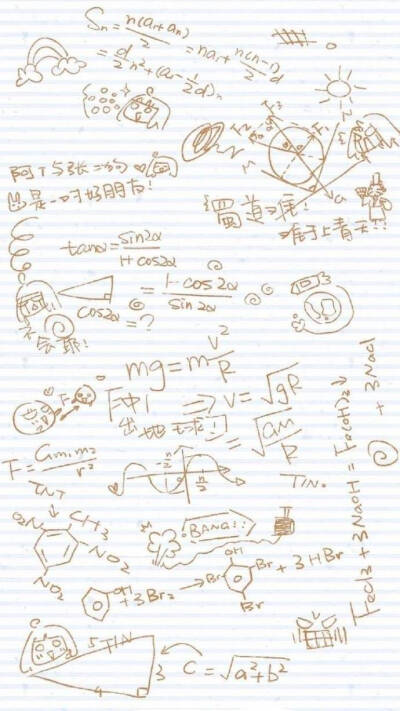 Sn = n(a1+an)/2 = na1 + n(n-1)/2 d
= d/2 n² + (a1 - 1/2 d)n
阿丁与张二狗
出是一对好朋友!
蜀道难
难于上青天!!
tanα = sin2α/1+cos2α
= 1-cos2α/sin2α
cos2α = ?
不会乖!
mg = m v²/R
⇒ V = √gR
冲出地球!!
= √GM/R
F
F = Gm1m2/r²
-π/2
π/2
TNT
TIN.
CH3
O2N
NO2
NO2
BANG!!
OH + 3Br2 → OH Br Br Br + 3HBr
FeCl3 + 3NaOH = Fe(OH)3↓ + 3NaCl
5 TIN
3
4
C = √a²+b²